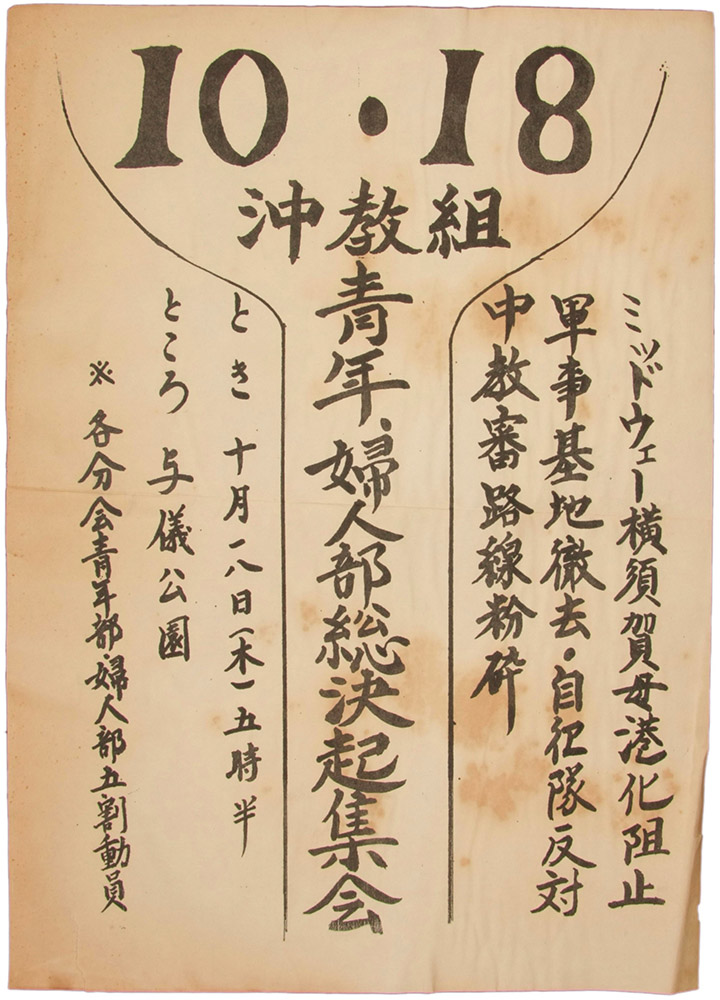 10・18
沖教組
青年、婦人部総決起集会
ミッドウェー横須賀母港化阻止
軍事基地徹去・自衛隊反対
中教審路線粉砕
とき 十月一八日(木)五時半
ところ 与儀公園
※ 各分会青年部・婦人部五割動員